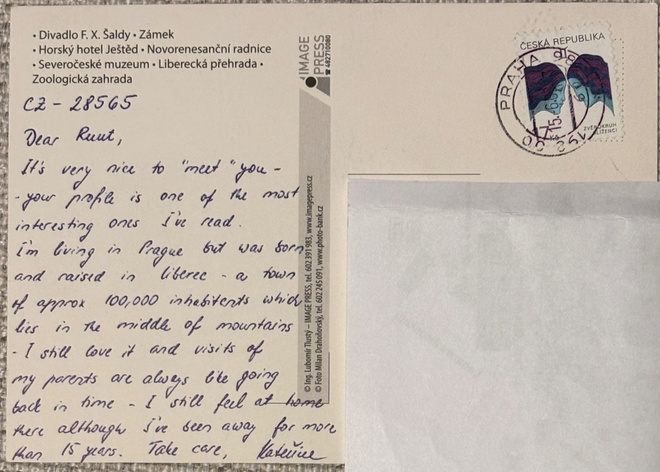 • Divadlo F. X. Šaldy • Zámek
• Horský hotel Ještěd • Novorenesanční radnice
• Severočeské muzeum • Liberecká přehrada •
Zoologická zahrada
CZ - 28565
Dear Ruut,
It's very nice to "meet" you -
- your profile is one of the most
interesting ones I've read.
I'm living in Prague but was born
and raised in Liberec - a town
of approx 100,000 inhabitents which
lies in the middle of mountains
- I still love it and visits of
my parents are always like going
back in time - I still feel at home
there although I've been away for more
than 15 years. Take care, Kateřina
IMAGE
PRESS
© Ing. Lubomír Tlustý – IMAGE PRESS, tel. 602 391 983, www.imagepress.cz
© Foto Milan Drahoňovský, tel. 602 245 091, www.photo-bank.cz
ČESKÁ REPUBLIKA
PRAHA
17
BLÍŽENCI